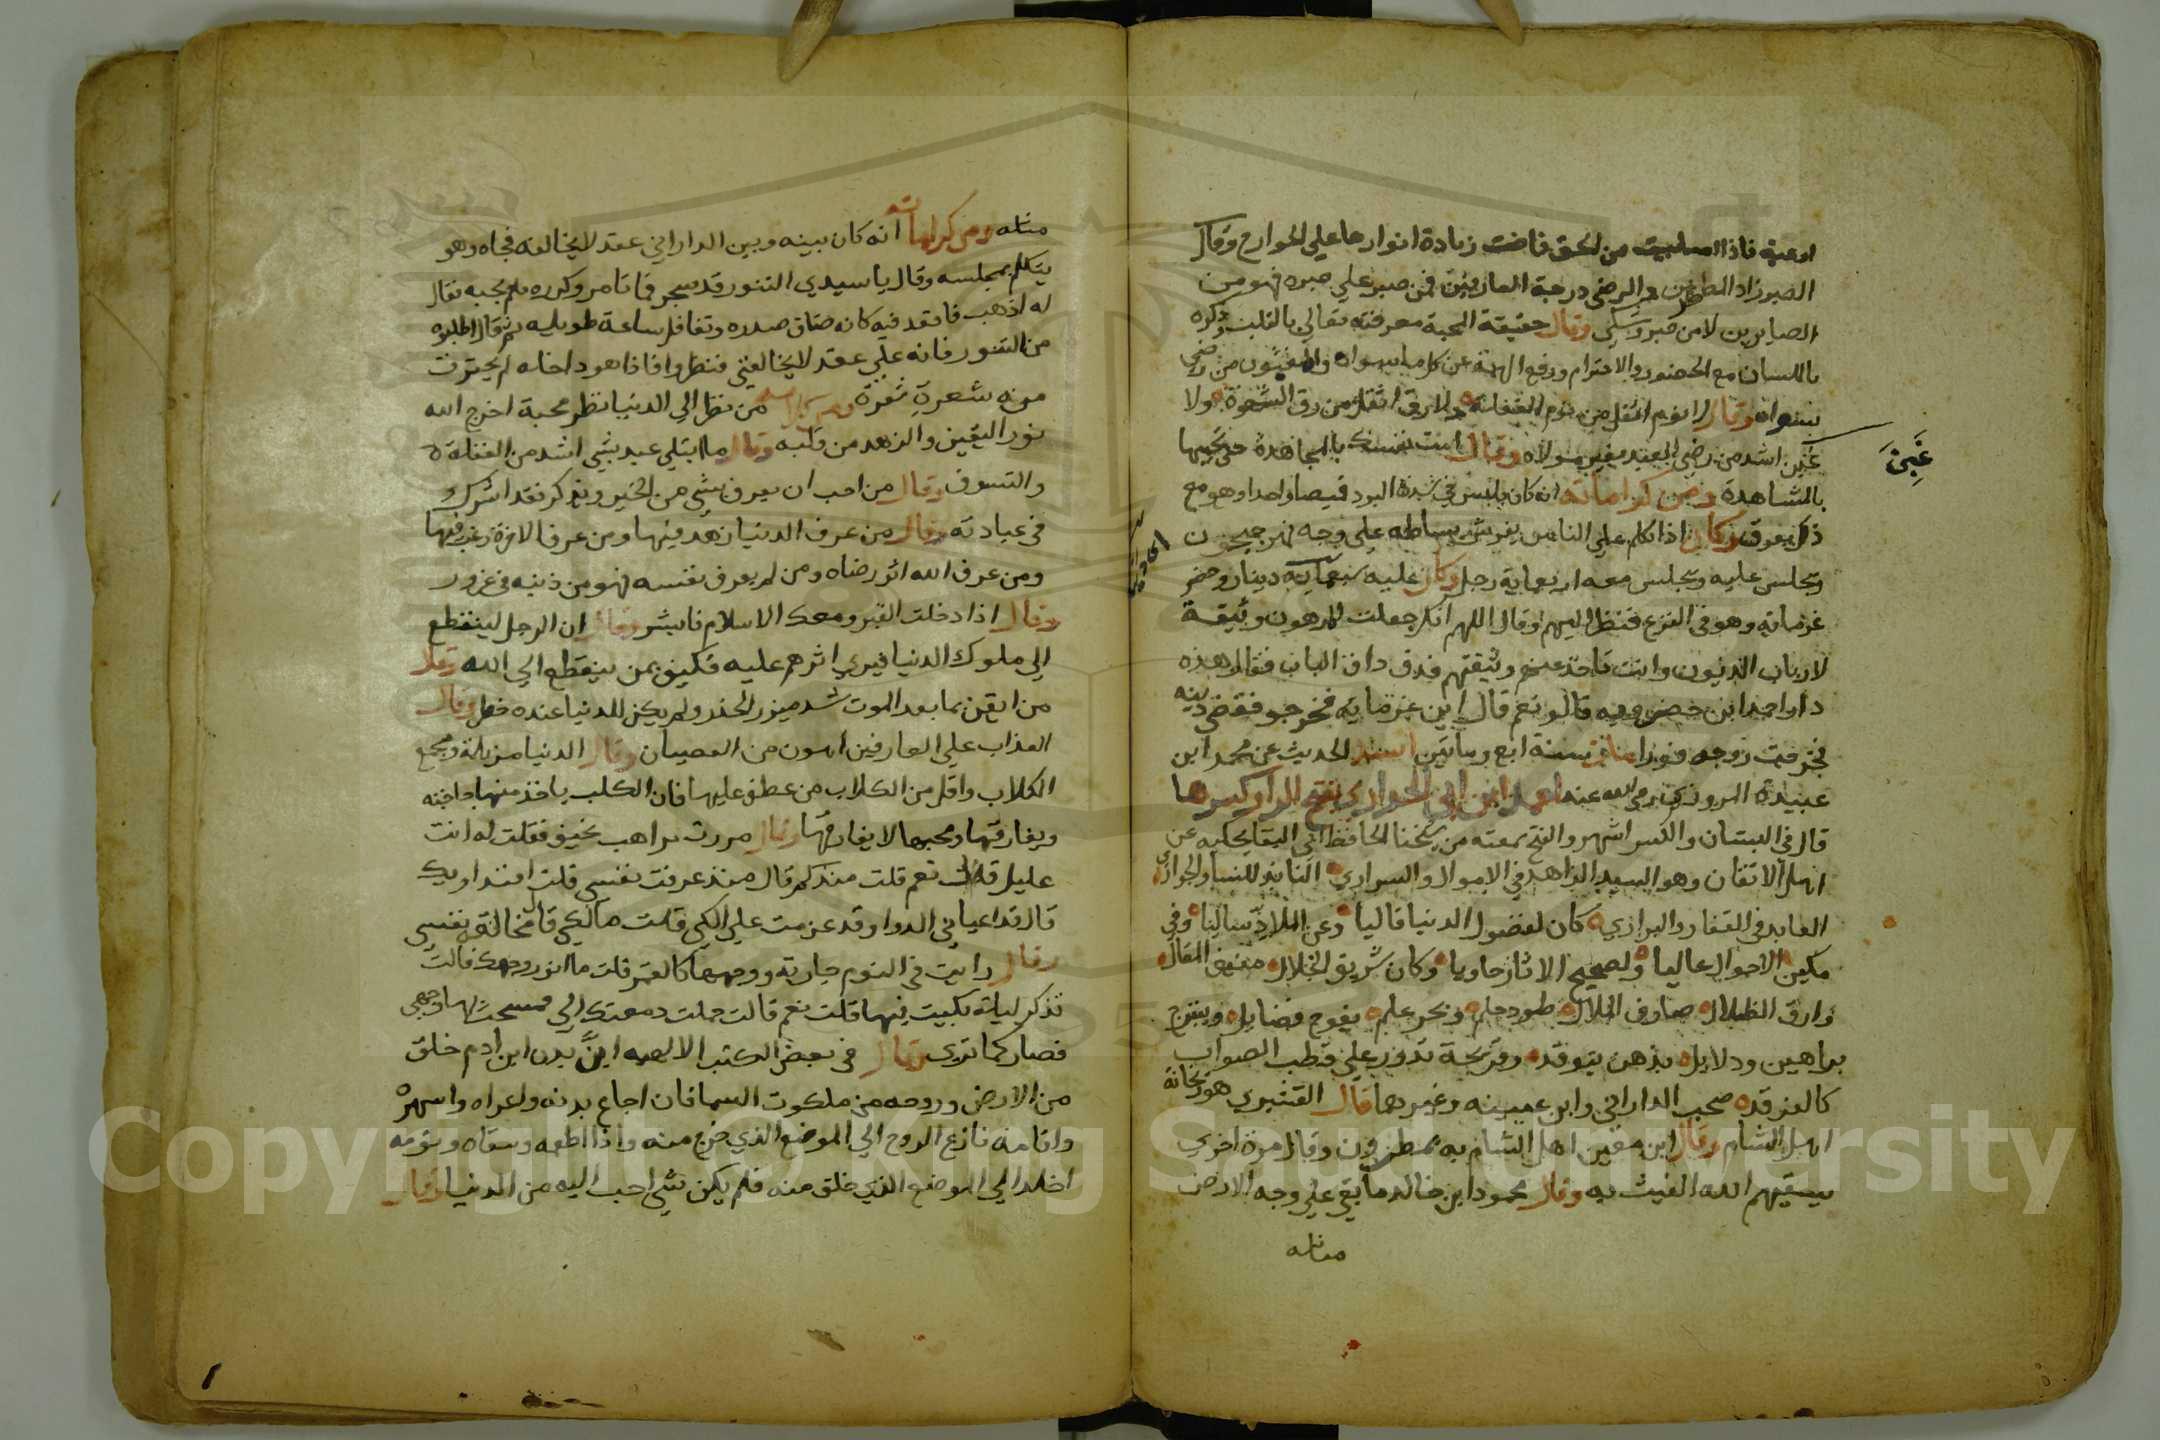 اوعية فاذا امتلات من الحق فاضت زيادة انوارها علي الجوارح وقال
الصبر زاد المضطرين والرضي درجة العارفين فمن صبر علي صبره فهو من
الصابرين لا من صبر وشكي وقال حقيقة المحبة معرفته تعالي بالقلب وذكره
باللسان مع الحضور والاحترام ورفع الهمة عن كل ما سواه والمغبون من رضي
بسواه وقال لا نوم اثقل من نوم الغفلة ولا رق املك من رق الشهوة ولا
غبن اشد من رضي العبد بغير مولاه وقال امت نفسك بالمجاهدة حتي تحييها
غَبنَ
بالمشاهدة ومن كراماته انه كان يلبس في شدة البرد قميصا واحدا وهو مع
ذلك يعرق وكان اذا تكلم علي الناس يفرش بساطه علي وجه نهر جيحون
ويجلس عليه ويجلس معه اربعماية رجل وكان عليه سبعماية دينار وحضر
غرماؤه وهو في النزع فنظر اليهم وقال اللهم انك جعلت الرهون وثيقة
لارباب الديون وانت تاخذ عنهم وثيقتهم فدق داق الباب فقال هذه
دار احمد ابن خضرويه قالو نعم قال اين غرمايه فخرجو فقضي دينه
فخرجت روحه فورا مات سنة اربع وماتين اسند الحديث عن محمد ابن
عبيدة المروزي رضي الله عنه احمد ابن ابي الحواري بفتح الرا وكسرها
قال في البستان والكسر اشهر والفتح سمعته من شيخنا الحافظ ابي البقا يحكيه عن
اهل الاتقان وهو السيد الزاهد في الاموال والسراري النابذ للنسا والجواري
العابد في القفار والبراري كان لفضول الدنيا قاليا وعن الملاذ ساليا وفي
مكين الاحوال عاليا ولصحيح الاثار حاويا وكان شريق الخلال مبغض المقال
وارق الظلال صارف الملال طود حلم وبحر علم يفوح فضايل ويشرح
براهين ودلايل بذهن يتوقد وقريحة تدور علي قطب الصواب
كالفرقد صحب الداراني وابن عيينه وغيرهما قال القشيري هو ريحانة
اهل الشام وقال ابن معين اهل الشام به يمطرون وقال مرة اخري
يسقيهم الله الغيث به وقال محمود ابن خالد ما بقي علي وجه الارض
مثله
مثله ومن كراماته انه كان بينه وبين الداراني عقد لا يخالفه فجاه وهو
يتكلم بمجلسه وقال يا سيدي التنور قد سجر فما تامر وكرره فلم يجبه فقال
له اذهب فاقعد فيه كانه ضاق صدره وتغافل ساعة طويله ثم قال اطلبوه
من التنور فانه علي عقد لا يخالفني فنظروا فاذا هو داخله لم يحترق
منه شعرة ومن كلامه من نظر الي الدنيا نظر محبة اخرج الله
نور اليقين والزهد من قلبه وقال ما ابتلي عبد بشي اشد من الغفلة
والتسوف وقال من احب ان يعرف بشي من الخير ويذكر فقد اشرك
في عبادته وقال من عرف الدنيا زهد فيها ومن عرف الاخرة رغب فيها
ومن عرف الله اثر رضاه ومن لم يعرف نفسه فهو من ذينه في غرور
وقال اذا دخلت القبر ومعك الاسلام فابشر وقال ان الرجل لينقطع
الي ملوك الدنيا فيري اثرهم عليه فكيف بمن ينقطع الي الله وقال
من ايقن بما بعد الموت شد ميزر الحذر ولم يكن للدنيا عنده خطر وقال
العذاب علي العارفين اهون من العصيان وقال الدنيا مزبلة ومجمع
الكلاب واقل من الكلاب من عطف عليها فان الكلب ياخذ منها حاجته
ويفارقها ومحبها لا يفارقها وقال مررت براهب نحيف فقلت له انت
عليل قال نعم قلت منذ كم قال منذ عرفت نفسي قلت افتداويك
قال قد اعياني الدوا وقد عزمت علي الكي قلت ما الكي قال مخالفة نفسي
وقال رايت في النوم جارية ووجهها كالقمر قلت ما انور وجهك قالت
تذكر ليلة بكيت فيها قلت نعم قالت حملت دمعتك الي فمسحت بها وجهي
فصار كما تري وقال في بعض الكتب الالهيه انَّ بدن ابن ادم خلق
من الارض وروحه من ملكوت السما فان اجاع بدنه واعراه واسهره
واقامه نازع الروح الي الموضع الذي خرج منه واذا اطعمه وسقاه ونومه
اخلد الي الموضع الذي خلق منه فلم يكن شي احب اليه من الدنيا وقال
Copyright © King Saud University